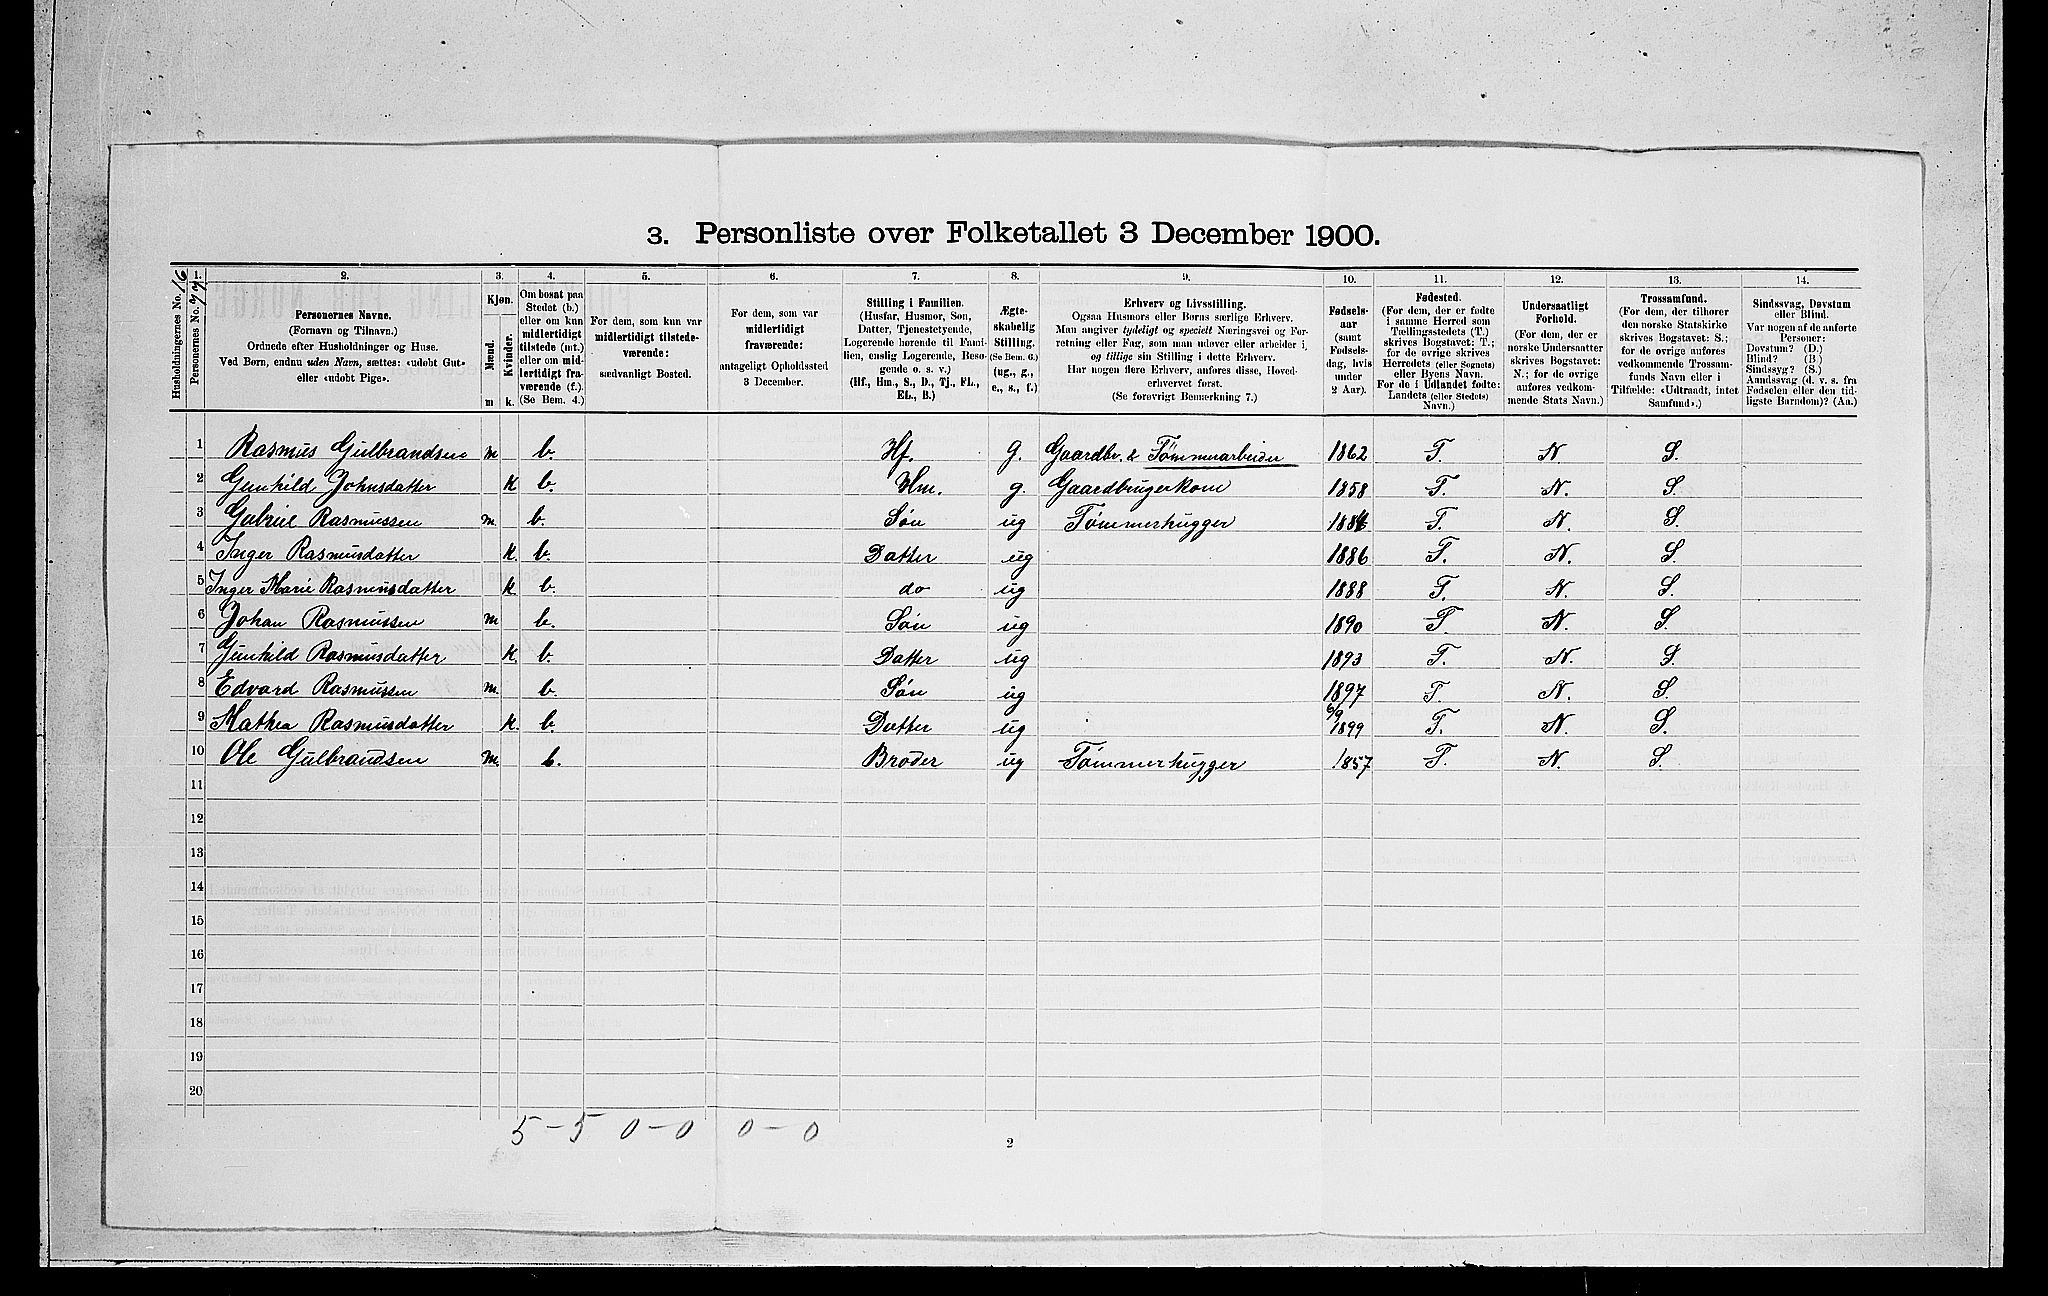 3. Personliste over Folketallet 3 December 1900.
Husholdningernes No. 16
1. Personernes No.
2. Personernes Navne.
(Fornavn og Tilnavn.)
Ordnede efter Husholdninger og Huse.
Ved Børn, endnu uden Navn, sættes: «udobt Gut»
eller «udobt Pige».
3. Kjøn.
Mænd. Kvinder.
m k.
4. Om bosat paa
Stedet (b.)
eller om kun
midlertidigt
tilstede (mt.)
eller om mid-
lertidigt fra-
værende (f.).
(Se Bem. 4.)
5. For dem, som kun var
midlertidigt tilstede-
værende:
sædvanligt Bosted.
6. For dem, som var
midlertidigt
fraværende:
antageligt Opholdssted
3 December.
7. Stilling i Familien.
(Husfar, Husmor, Søn,
Datter, Tjenestetyende,
Logerende hørende til Fami-
lien, enslig Logerende, Besø-
gende o. s. v.)
(Hf., Hm., S., D., Tj., FL.,
EL., B.)
8. Ægte-
skabelig
Stilling.
(Se Bem. 6.)
(ug., g.,
e., s., f.)
9. Erhverv og Livsstilling.
Ogsaa Husmors eller Børns særlige Erhverv.
Man angiver tydeligt og specielt Næringsvei og For-
retning eller Fag, som man udøver eller arbeider i,
og tillige sin Stilling i dette Erhverv.
Har nogen flere Erhverv, anføres disse, Hoved-
erhvervet først.
(Se forøvrigt Bemerkning 7.)
10. Fødsels-
aar
(samt
Fødsels-
dag, hvis
under
2 Aar).
11. Fødested.
(For dem, der er fødte
i samme Herred som
Tællingsstedets (T.)
skrives Bogstavet: T.;
for de øvrige skrives
Herredets (eller Sognets)
eller Byens Navn.
For de i Udlandet fødte:
Landets (eller Stedets)
Navn.)
12. Undersaatligt
Forhold.
(For dem, der er
norske Undersaatter
skrives Bogstavet:
N.; for de øvrige
anføres vedkom-
mende Stats Navn.)
13. Trossamfund.
(For dem, der tilhører
den norske Statskirke
skrives Bogstavet: S.;
for de øvrige anføres
vedkommende Trossam-
funds Navn eller i
Tilfælde: «Udtraadt, intet
Samfund».)
14. Sindssvag, Døvstum
eller Blind.
Var nogen af de anførte
Personer:
Døvstum? (D.)
Blind? (B.)
Sindssyg? (S.)
Aandssvag (d. v. s. fra
Fødselen eller den tid-
ligste Barndom)? (Aa.)
1 Rasmus Gulbrandsen m b. Hf. g. Gaardbr. & Tømmerarbeider 1862 T. N. S.
2 Gunhild Johnsdatter k b. Hm. g. Gaardbrugerkone 1858 T. N. S.
3 Gabriel Rasmussen m. b. Søn ug Tømmerhugger 1884 T. N. S.
4 Inger Rasmusdatter k. b. Datter ug 1886 T. N. S.
5 Inger Marie Rasmusdatter k b. do ug 1888 T. N. S.
6 Johan Rasmussen m b. Søn ug 1890 T. N. S.
7 Gunhild Rasmusdatter k. b. Datter ug 1893 T. N. S.
8 Edvard Rasmussen m. b. Søn ug 1897 T. N. S.
9 Mathea Rasmusdatter k. b. Datter ug 6/9 1899 T. N. S.
10 Ole Gulbrandsen m. b. Broder ug Tømmerhugger 1857 T. N. S.
11
12
13
14
15
16
17
18
19
20
5-5 0-0 0-0
2